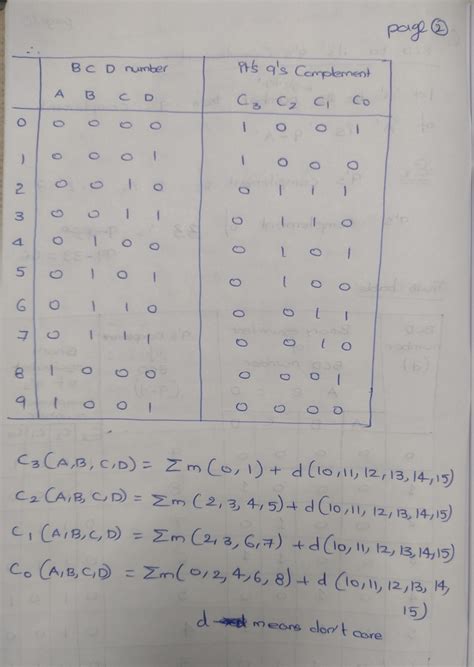 page ②
∴
BCD number It's 9's Complement
A B C D C₃ C₂ C₁ C₀
0 0 0 0 0 1 0 0 1
1 0 0 0 1 1 0 0 0
2 0 0 1 0 0 1 1 1
3 0 0 1 1 0 1 1 0
4 0 1 0 0 0 1 0 1
5 0 1 0 1 0 1 0 0
6 0 1 1 0 0 0 1 1
7 0 1 1 1 0 0 1 0
8 1 0 0 0 0 0 0 1
9 1 0 0 1 0 0 0 0
C₃(A,B,C,D) = Σm(0,1) + d(10,11,12,13,14,15)
C₂(A,B,C,D) = Σm(2,3,4,5) + d(10,11,12,13,14,15)
C₁(A,B,C,D) = Σm(2,3,6,7) + d(10,11,12,13,14,15)
C₀(A,B,C,D) = Σm(0,2,4,6,8) + d(10,11,12,13,14,
15)
d means don't care